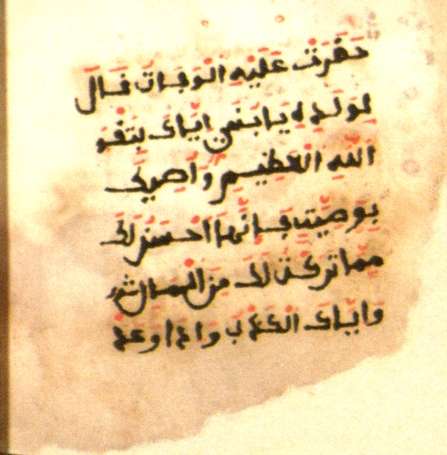 حضرت عليه الوفات فال
لولده يا بني اياك بتفو
الله العظيم واصيك
بوصيت فإنها احسن لك
مما تركت لك من المال ثم
واياك الكذب واذا وعد